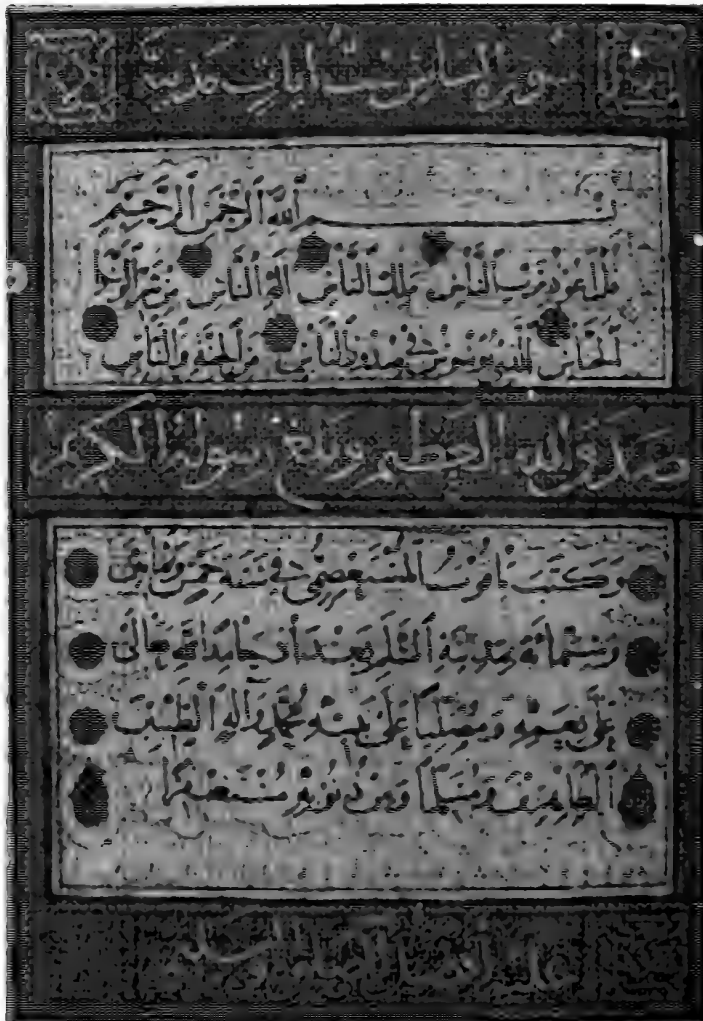 سورة الناس ست آيات مدنية
بسم الله الرحمن الرحيم
قل أعوذ برب الناس ملك الناس إله الناس من شر الوسواس
الخناس الذي يوسوس في صدور الناس من الجنة والناس
صدق الله العظيم وبلغ رسوله الكريم
وكتب ياقوت المستعصمي في سنة خمس وثمانين
وستمائة بمدينة السلم بغداد حامدا لله تعالى
على نعمه ومصليا على نبيه محمد وآله الطيبين
الطاهرين ومسلما ومن ذنوبه مستغفرا
عليه أفضل